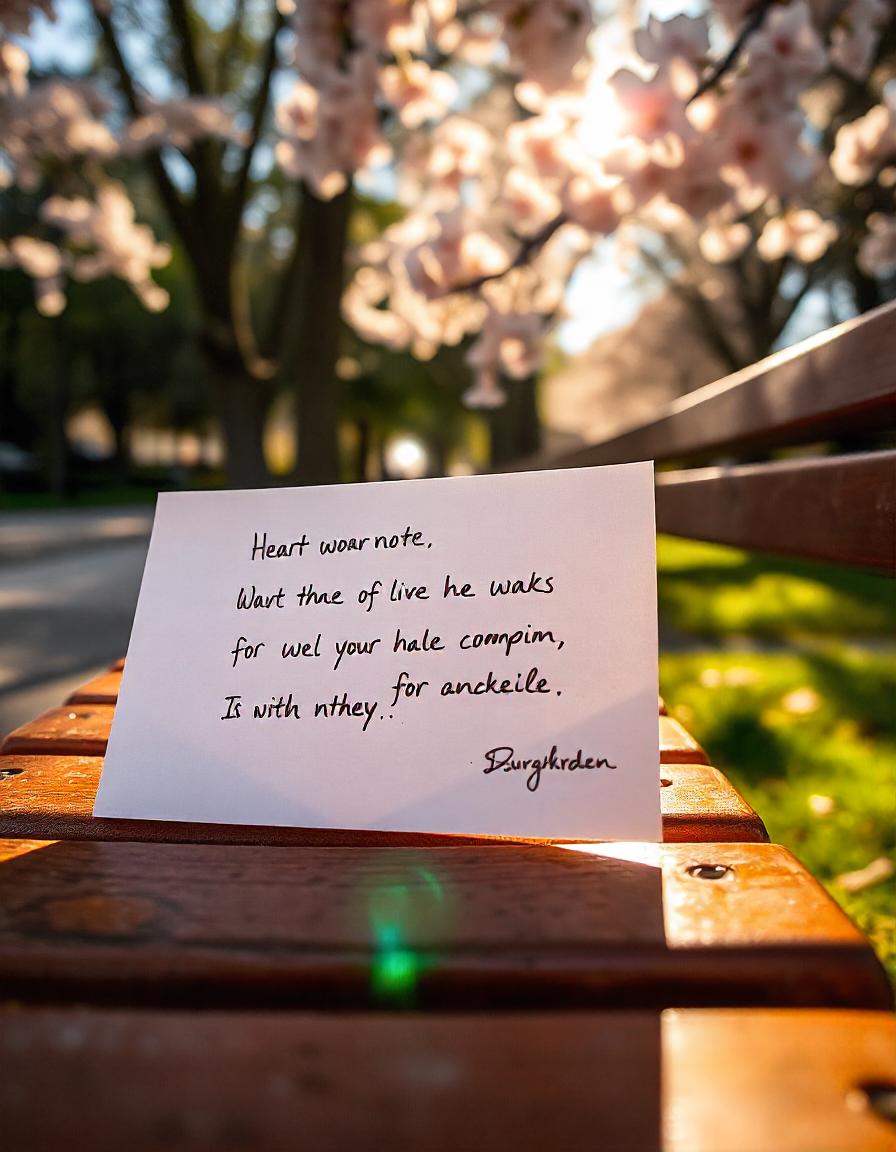 Heart woar note,
Wart thne of live he waks
for wel your hale compim,
for anckeile.
Is with nthey..
Durgkrden